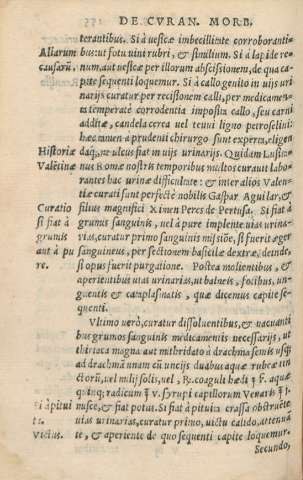 DE CVRAN. MORB.
terantibus. Si à vesicæ imbecillitate corroboranti-
Aliarum
bus: ut fotu uini rubri, & similium. Si à lapide re-
causarũ,
num, aut vesicæ per illorum abscissionem, de qua ca-
pite sequenti loquemur. Si à callo genito in uijs uri
narijs curatur per recisionem calli, per medicamen
ta temperatè corrodentia imposita callo, seu carni
additæ, candela cerea vel tenui ligno petroselini:
hæc autem à prudenti chirurgo sunt experta, eligen
Historiæ
daq́;, ne ulcus fiat in uijs urinarijs. Quidam Lusita-
Valẽtinæ
nus Romæ nostris temporibus multos curauit labo
rantes hac urinæ difficultate: & inter alios Valen-
tiæ curati sunt perfectè nobilis Gaspar Aguilar, &
Curatio
filius magnifici Ximen Peres de Pertusa. Si fiat à
si fiat à
grumis sanguinis, uel à pure implente uias urina-
grumis
rias, curatur primo sanguinis missiõe, si fuerit æger
aut à pu
sanguineus, per sectionem basilicæ dextræ, deinde,
re.
si opus fuerit purgatione. Postea molientibus, &
aperientibus uias urinarias, ut balneis, fotibus, un-
guentis & cataplasmatis, quæ dicemus capite se-
quenti.
Vltimo uerò, curatur dissoluentibus, & euacuanti
bus grumos sanguinis medicamentis necessarijs, ut
thiriaca magna aut mithridato à drachma semis usq́;
ad drachmã unam cũ uncijs duabus aquæ rubeæ tin
ctorũ, uel milij solis, uel, ꝶ. coaguli hœdi ʒ ß. aquæ
quinq; radicum ℥ v. syrupi capillorum Veneris ℥ i.
Si à pitui
misce, & fiat potus. Si fiat à pituita crassa obstruẽte
ta.
uias urinarias, curatur primo, victu calido, attenuã
Victus.
te, & aperiente de quo sequenti capite loquemur.
Secundo,